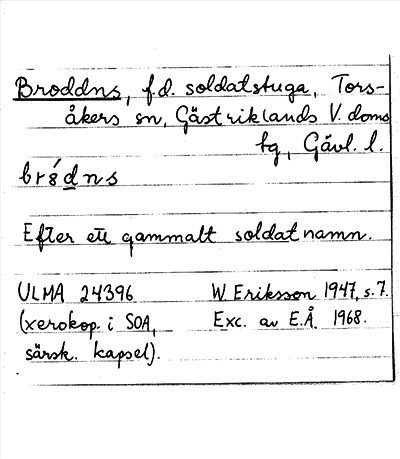 Broddns, f.d. soldatstuga, Tors-
åkers sn, Gästriklands V. doms
hg, Gävl. l.
Efter ett gammalt soldatnamn.
ULMA 24396 W. Eriksson 1947, s. 7.
(xerokop. i SOA, Exc. av E.Å. 1968.
särsk. kapsel).